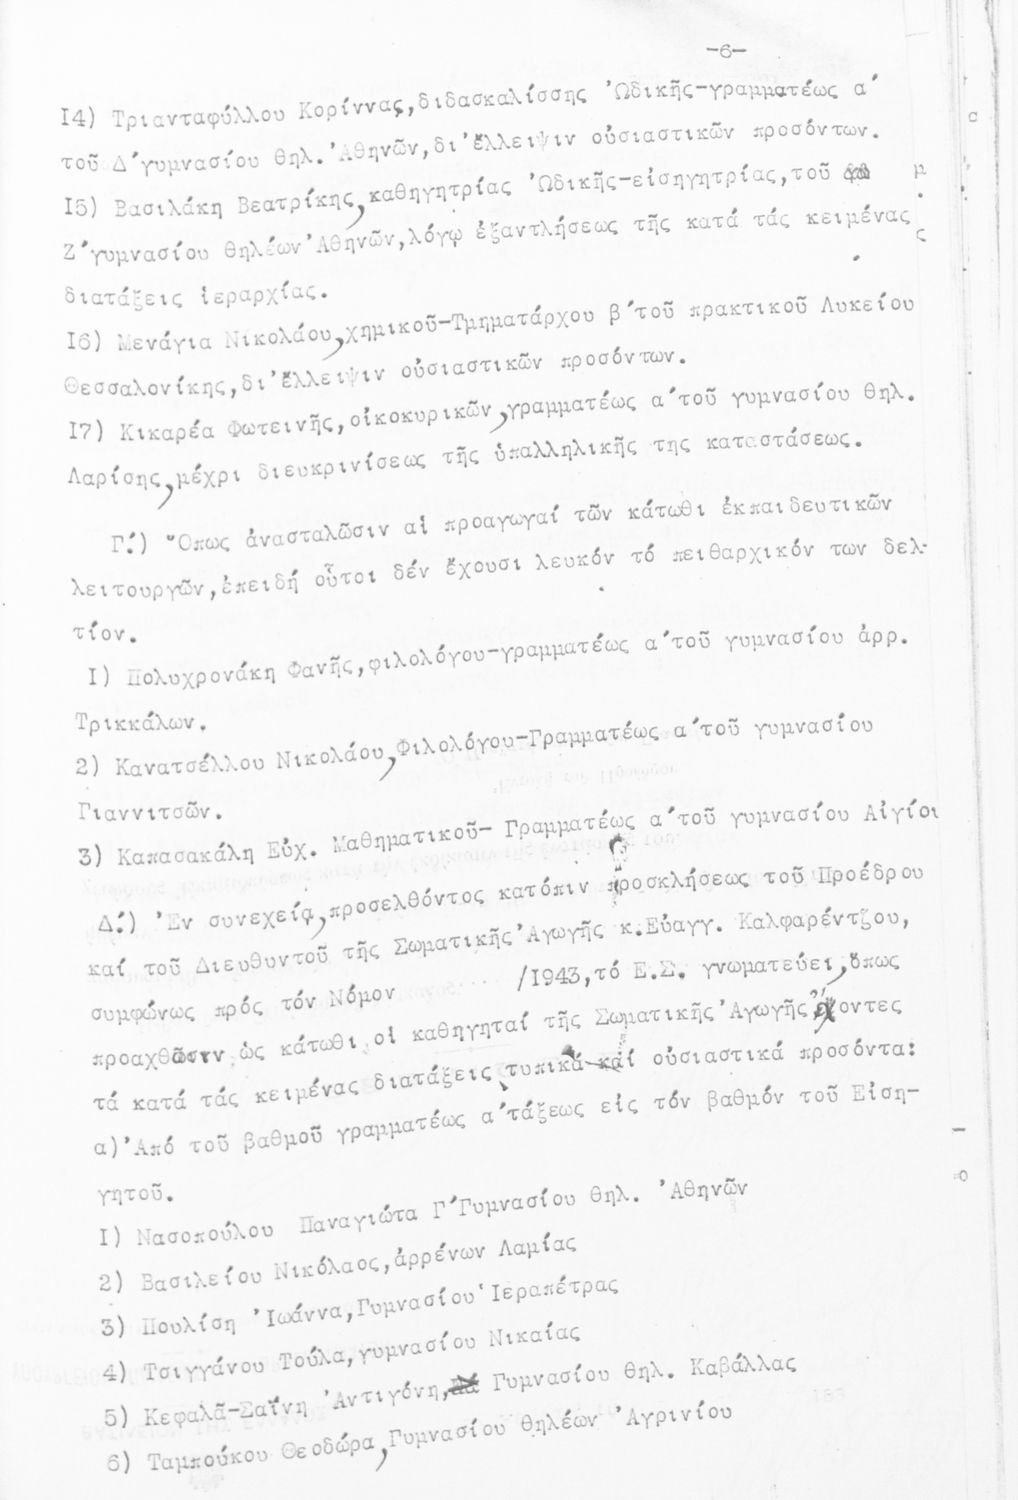 -6-
Ι4) Τριανταφύλλου Κορίννας,διδασκαλίσσης Ὠδικῆς-γραμματέως α΄
τοῦ Δ΄γυμνασίου θηλ.Ἀθηνῶν,δι᾿ἔλλειψιν οὐσιαστικῶν προσόντων.
Ι5) Βασιλάκη Βεατρίκης,καθηγητρίας Ὠδικῆς-εἰσηγητρίας,τοῦ
Ζ΄γυμνασίου θηλέων Ἀθηνῶν,λόγῳ ἐξαντλήσεως τῆς κατά τάς κειμένας
διατάξεις ἱεραρχίας.
Ι6) Μενάγια Νικολάου,χημικοῦ-Τμηματάρχου β΄τοῦ πρακτικοῦ Λυκείου
Θεσσαλονίκης,δι᾿ἔλλειψιν οὐσιαστικῶν προσόντων.
Ι7) Κικαρέα Φωτεινῆς,οἰκοκυρικῶν,γραμματέως α΄τοῦ γυμνασίου θηλ.
Λαρίσης,μέχρι διευκρινίσεως τῆς ὑπαλληλικῆς της καταστάσεως.
Γ΄.) Ὅπως ἀνασταλῶσιν αἱ προαγωγαί τῶν κάτωθι ἐκπαιδευτικῶν
λειτουργῶν,ἐπειδή οὗτοι δέν ἔχουσι λευκόν τό πειθαρχικόν των δελ-
τίον.
Ι) Πολυχρονάκη Φανῆς,φιλολόγου-γραμματέως α΄τοῦ γυμνασίου ἀρρ.
Τρικκάλων.
2) Κανατσέλλου Νικολάου,Φιλολόγου-Γραμματέως α΄τοῦ γυμνασίου
Γιαννιτσῶν.
3) Καπασακάλη Εὐχ. Μαθηματικοῦ- Γραμματέως α΄τοῦ γυμνασίου Αἰγίου
Δ΄.) Ἐν συνεχείᾳ,προσελθόντος κατόπιν προσκλήσεως τοῦ Προέδρου
καί τοῦ Διευθυντοῦ τῆς Σωματικῆς Ἀγωγῆς κ.Εὐαγγ. Καλφαρέντζου,
συμφώνως πρός τόν Νόμον /1943,τό Ε.Σ. γνωματεύει,ὅπως
προαχθῶσιν ὡς κάτωθι οἱ καθηγηταί τῆς Σωματικῆς Ἀγωγῆς ἔχοντες
τά κατά τάς κειμένας διατάξεις τυπικά καί οὐσιαστικά προσόντα:
α)Ἀπό τοῦ βαθμοῦ γραμματέως α΄τάξεως εἰς τόν βαθμόν τοῦ Εἰση-
γητοῦ.
Ι) Νασοπούλου Παναγιώτα Γ΄Γυμνασίου θηλ. Ἀθηνῶν
2) Βασιλείου Νικόλαος,ἀρρένων Λαμίας
3) Πουλίση Ἰωάννα,Γυμνασίου Ἱεραπέτρας
4) Τσιγγάνου Τούλα,γυμνασίου Νικαίας
5) Κεφαλᾶ-Σαΐνη Ἀντιγόνη, Γυμνασίου θηλ. Καβάλλας
6) Ταμπούκου Θεοδώρα,Γυμνασίου θηλέων Ἀγρινίου